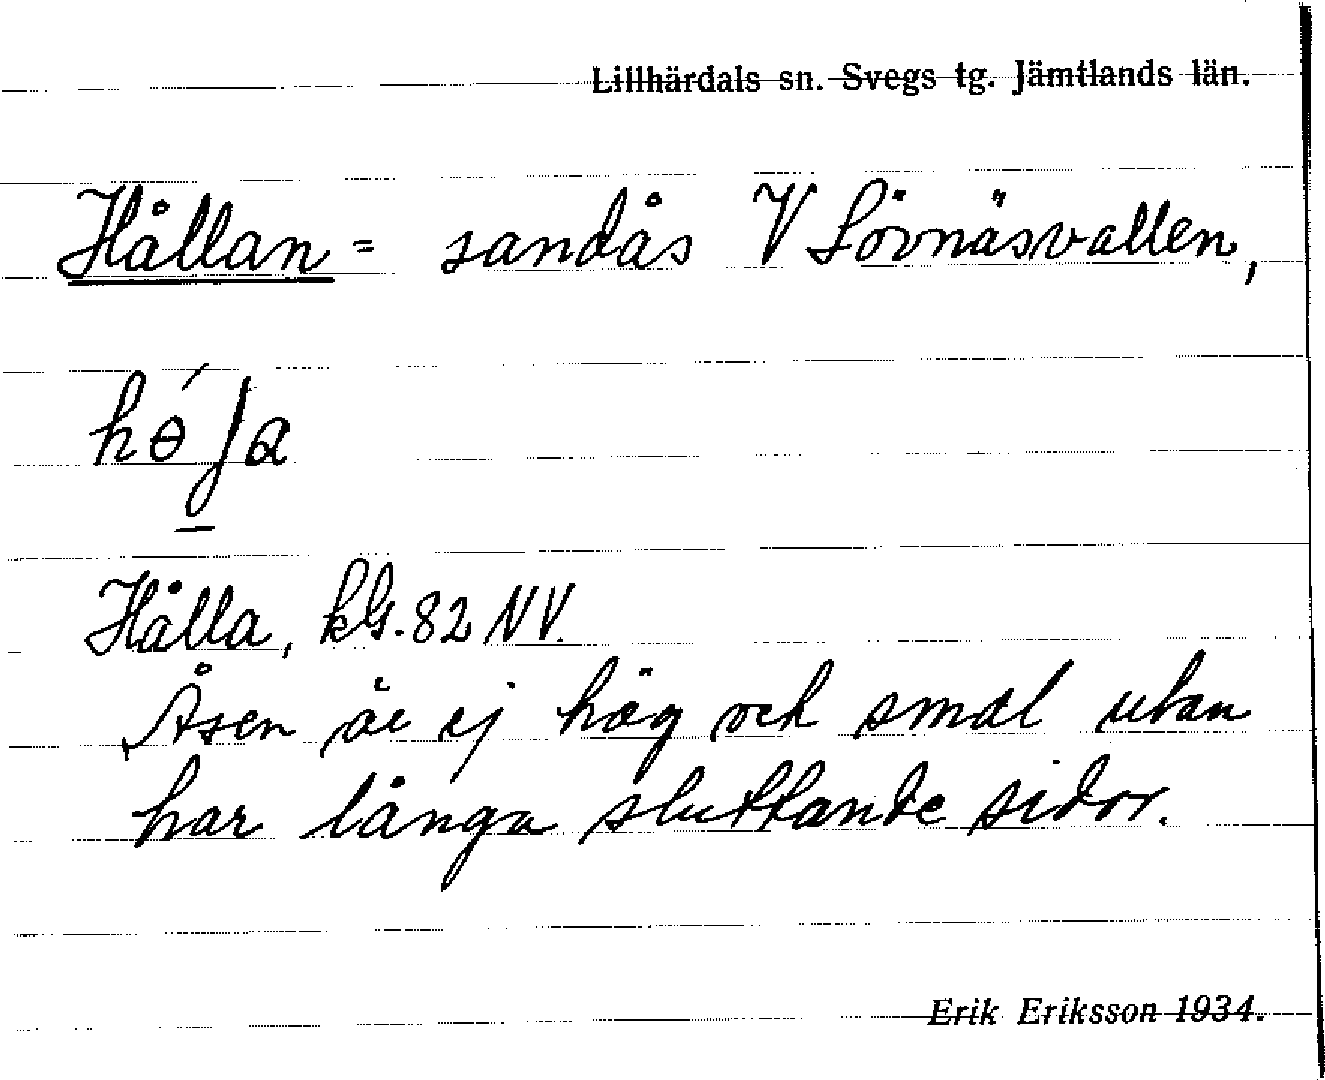 Lillhärdals sn. Svegs tg. Jämtlands län.
Hållan = sandås V Lövnäsvallen,
Hålla, kG. 82 NV.
Åsen är ej hög och smal utan
har långa sluttande sidor.
Erik Eriksson 1934.